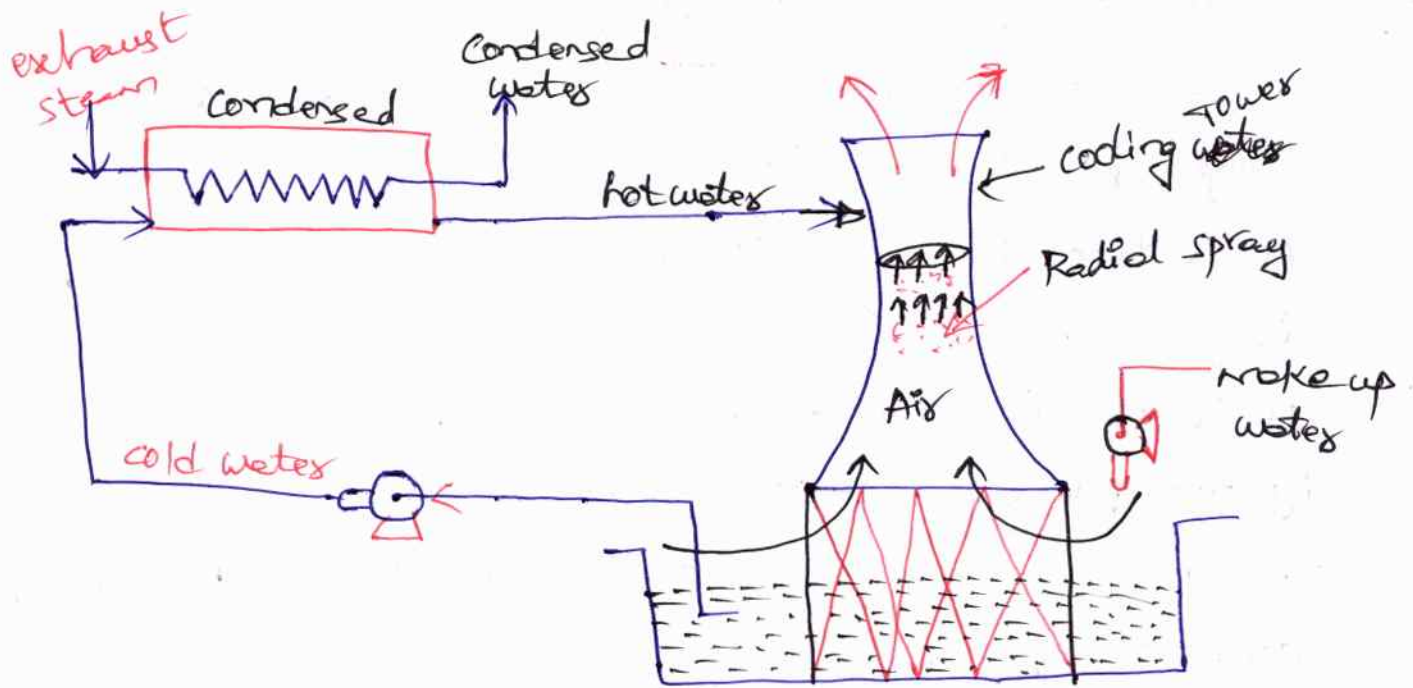 exhaust
steam
Condensed
Condensed
water
hot water
Tower
coding
Radial spray
Air
make up
water
cold water